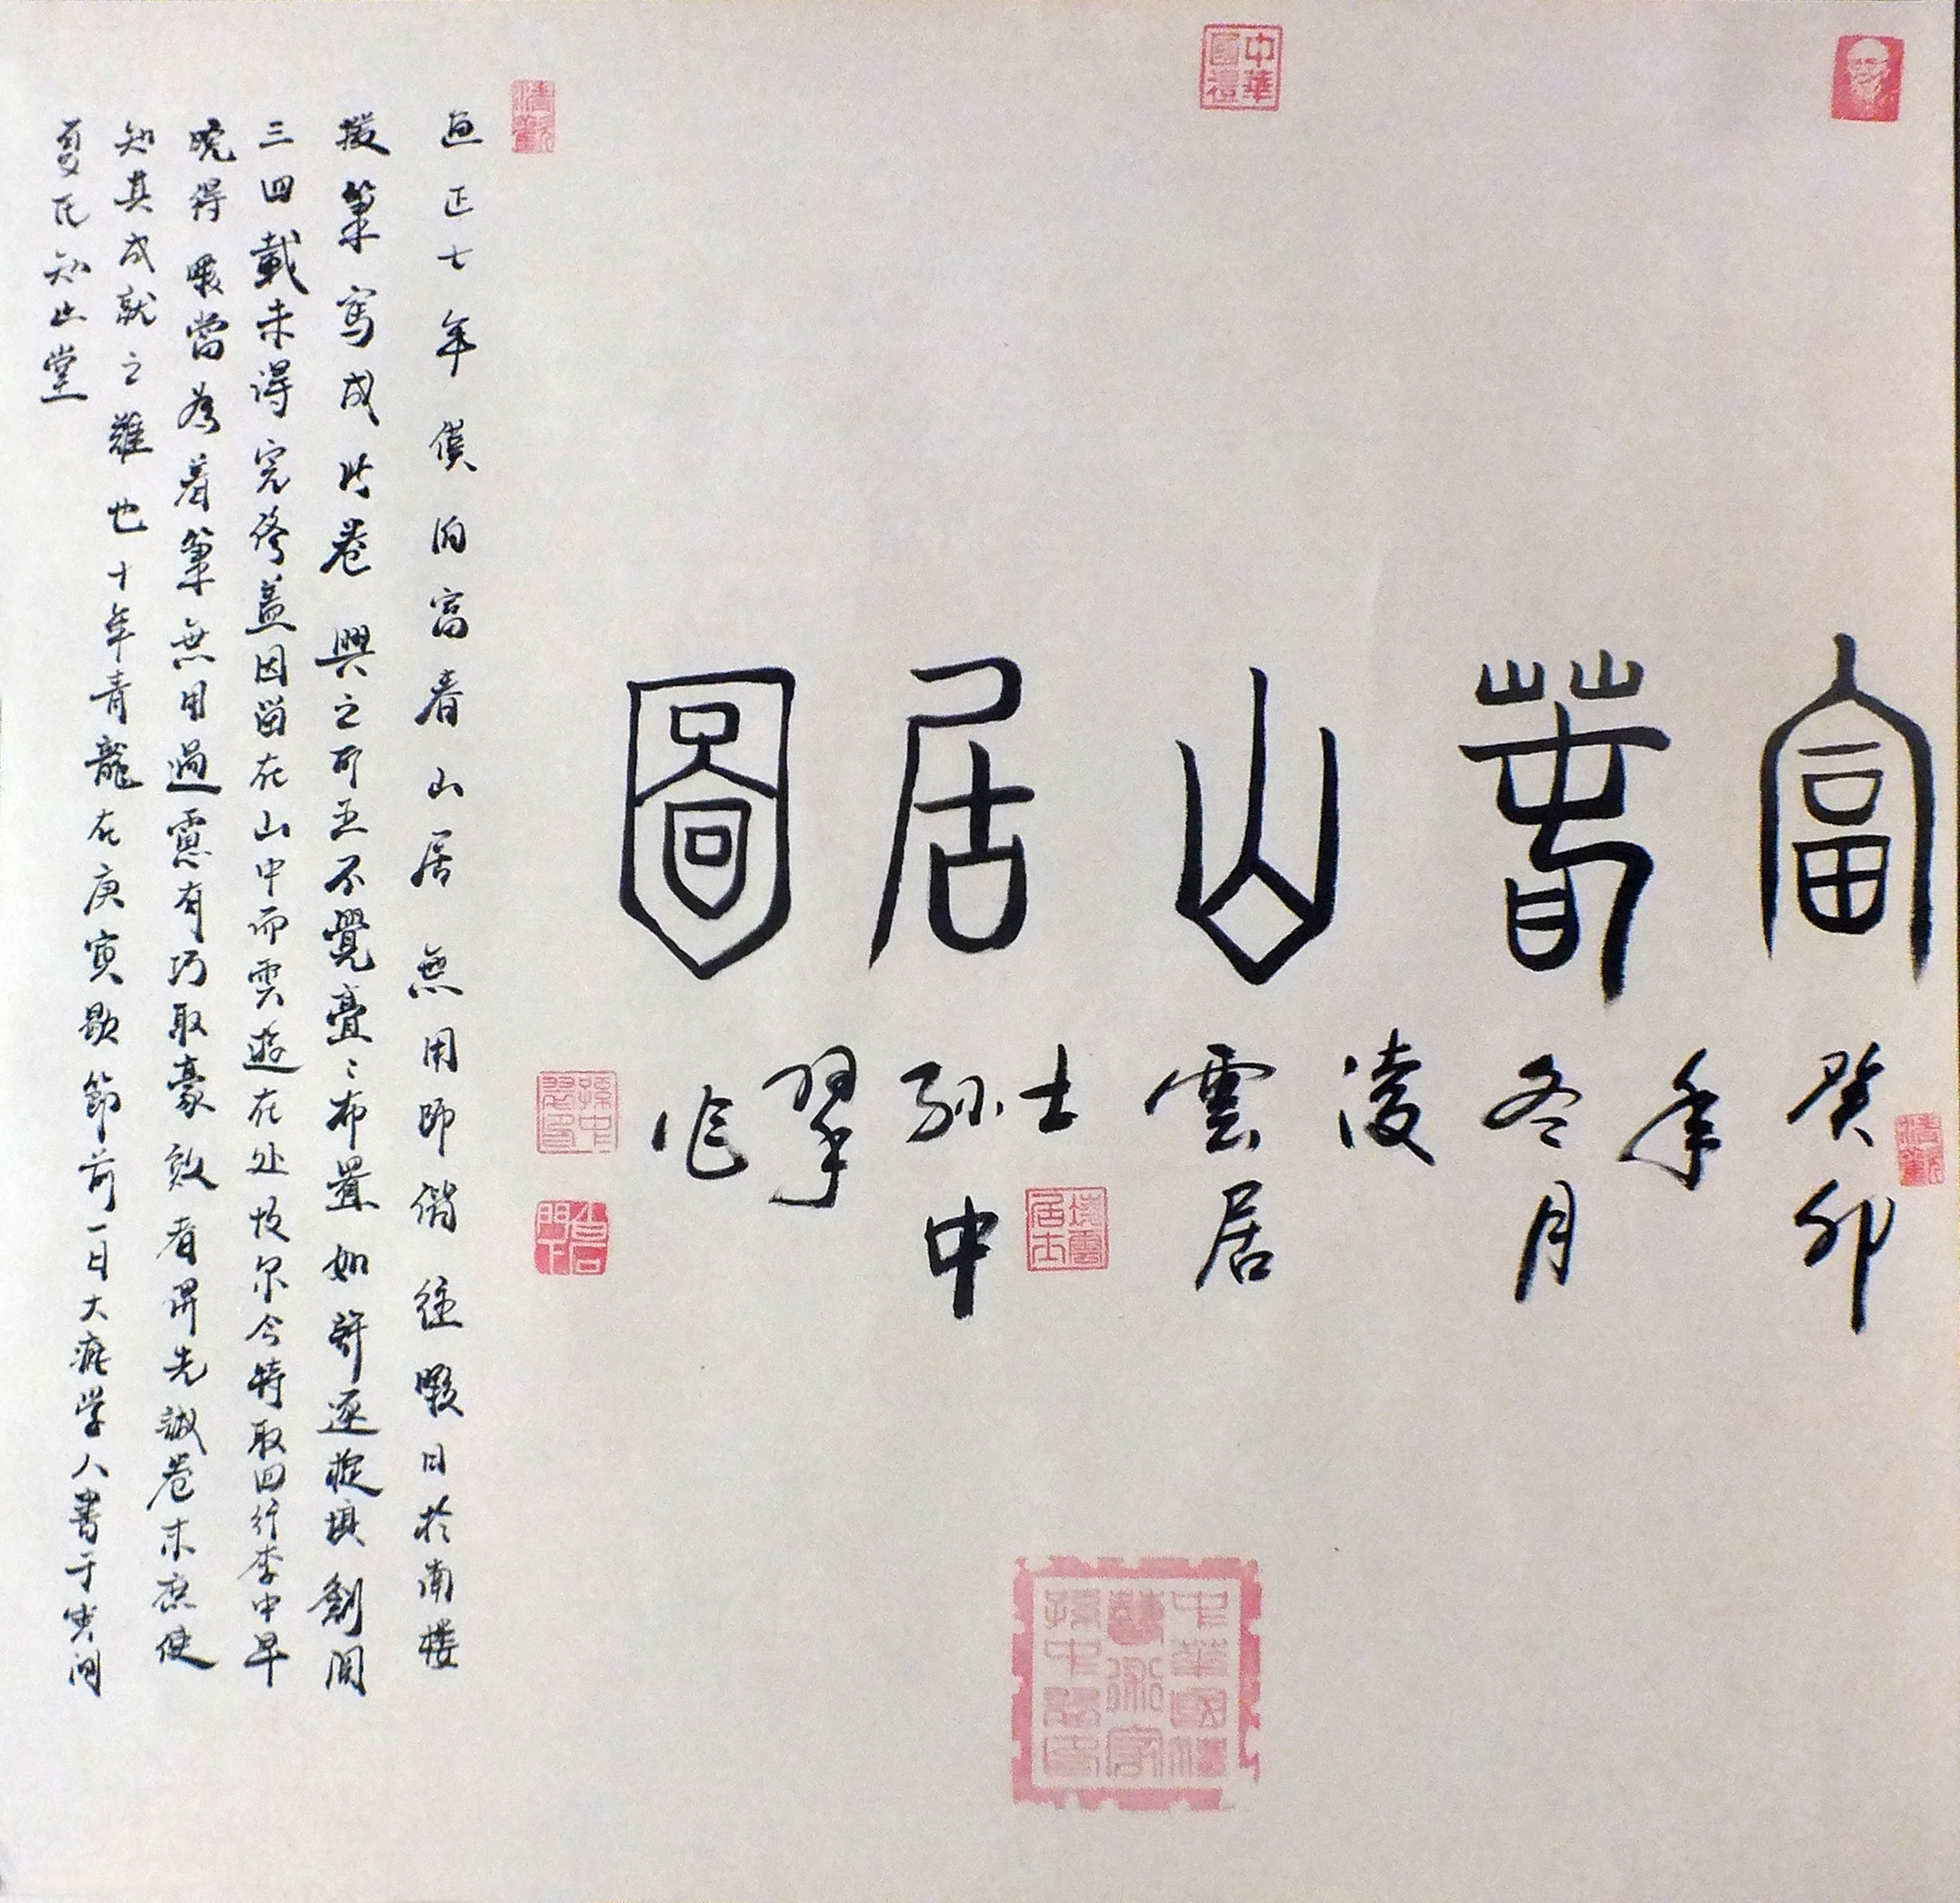 中華國禮
富春山居圖
癸卯
年
冬月
凌
雲居
士
孫中
翠
作
凌雲居士
中華國禮
藝術家
孫中翠印
至正七年僕归富春山居無用師偕往暇日於南楼
援筆寫成此卷興之所至不覺亹々布置如許逐旋填劄閱
三四載未得完俻盖因留在山中而雲遊在外故尔今特取回行李中早
晚得暇當為着筆無用過慮有巧取豪敚者俾先識卷末庶使
知其成就之難也十年青龍在庚寅歜節前一日大痴学人書于雲间
夏氏知止堂